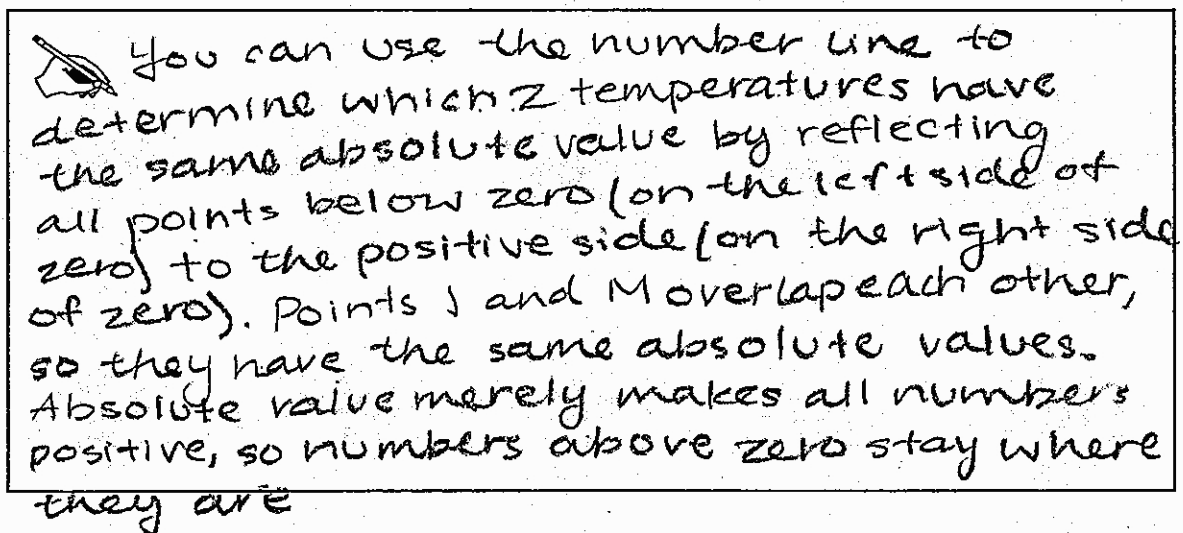 You can use the number line to
determine which 2 temperatures have
the same absolute value by reflecting
all points below zero (on the left side of
zero) to the positive side (on the right side
of zero). Points J and M overlap each other,
so they have the same absolute values.
Absolute value merely makes all numbers
positive, so numbers above zero stay where
they are